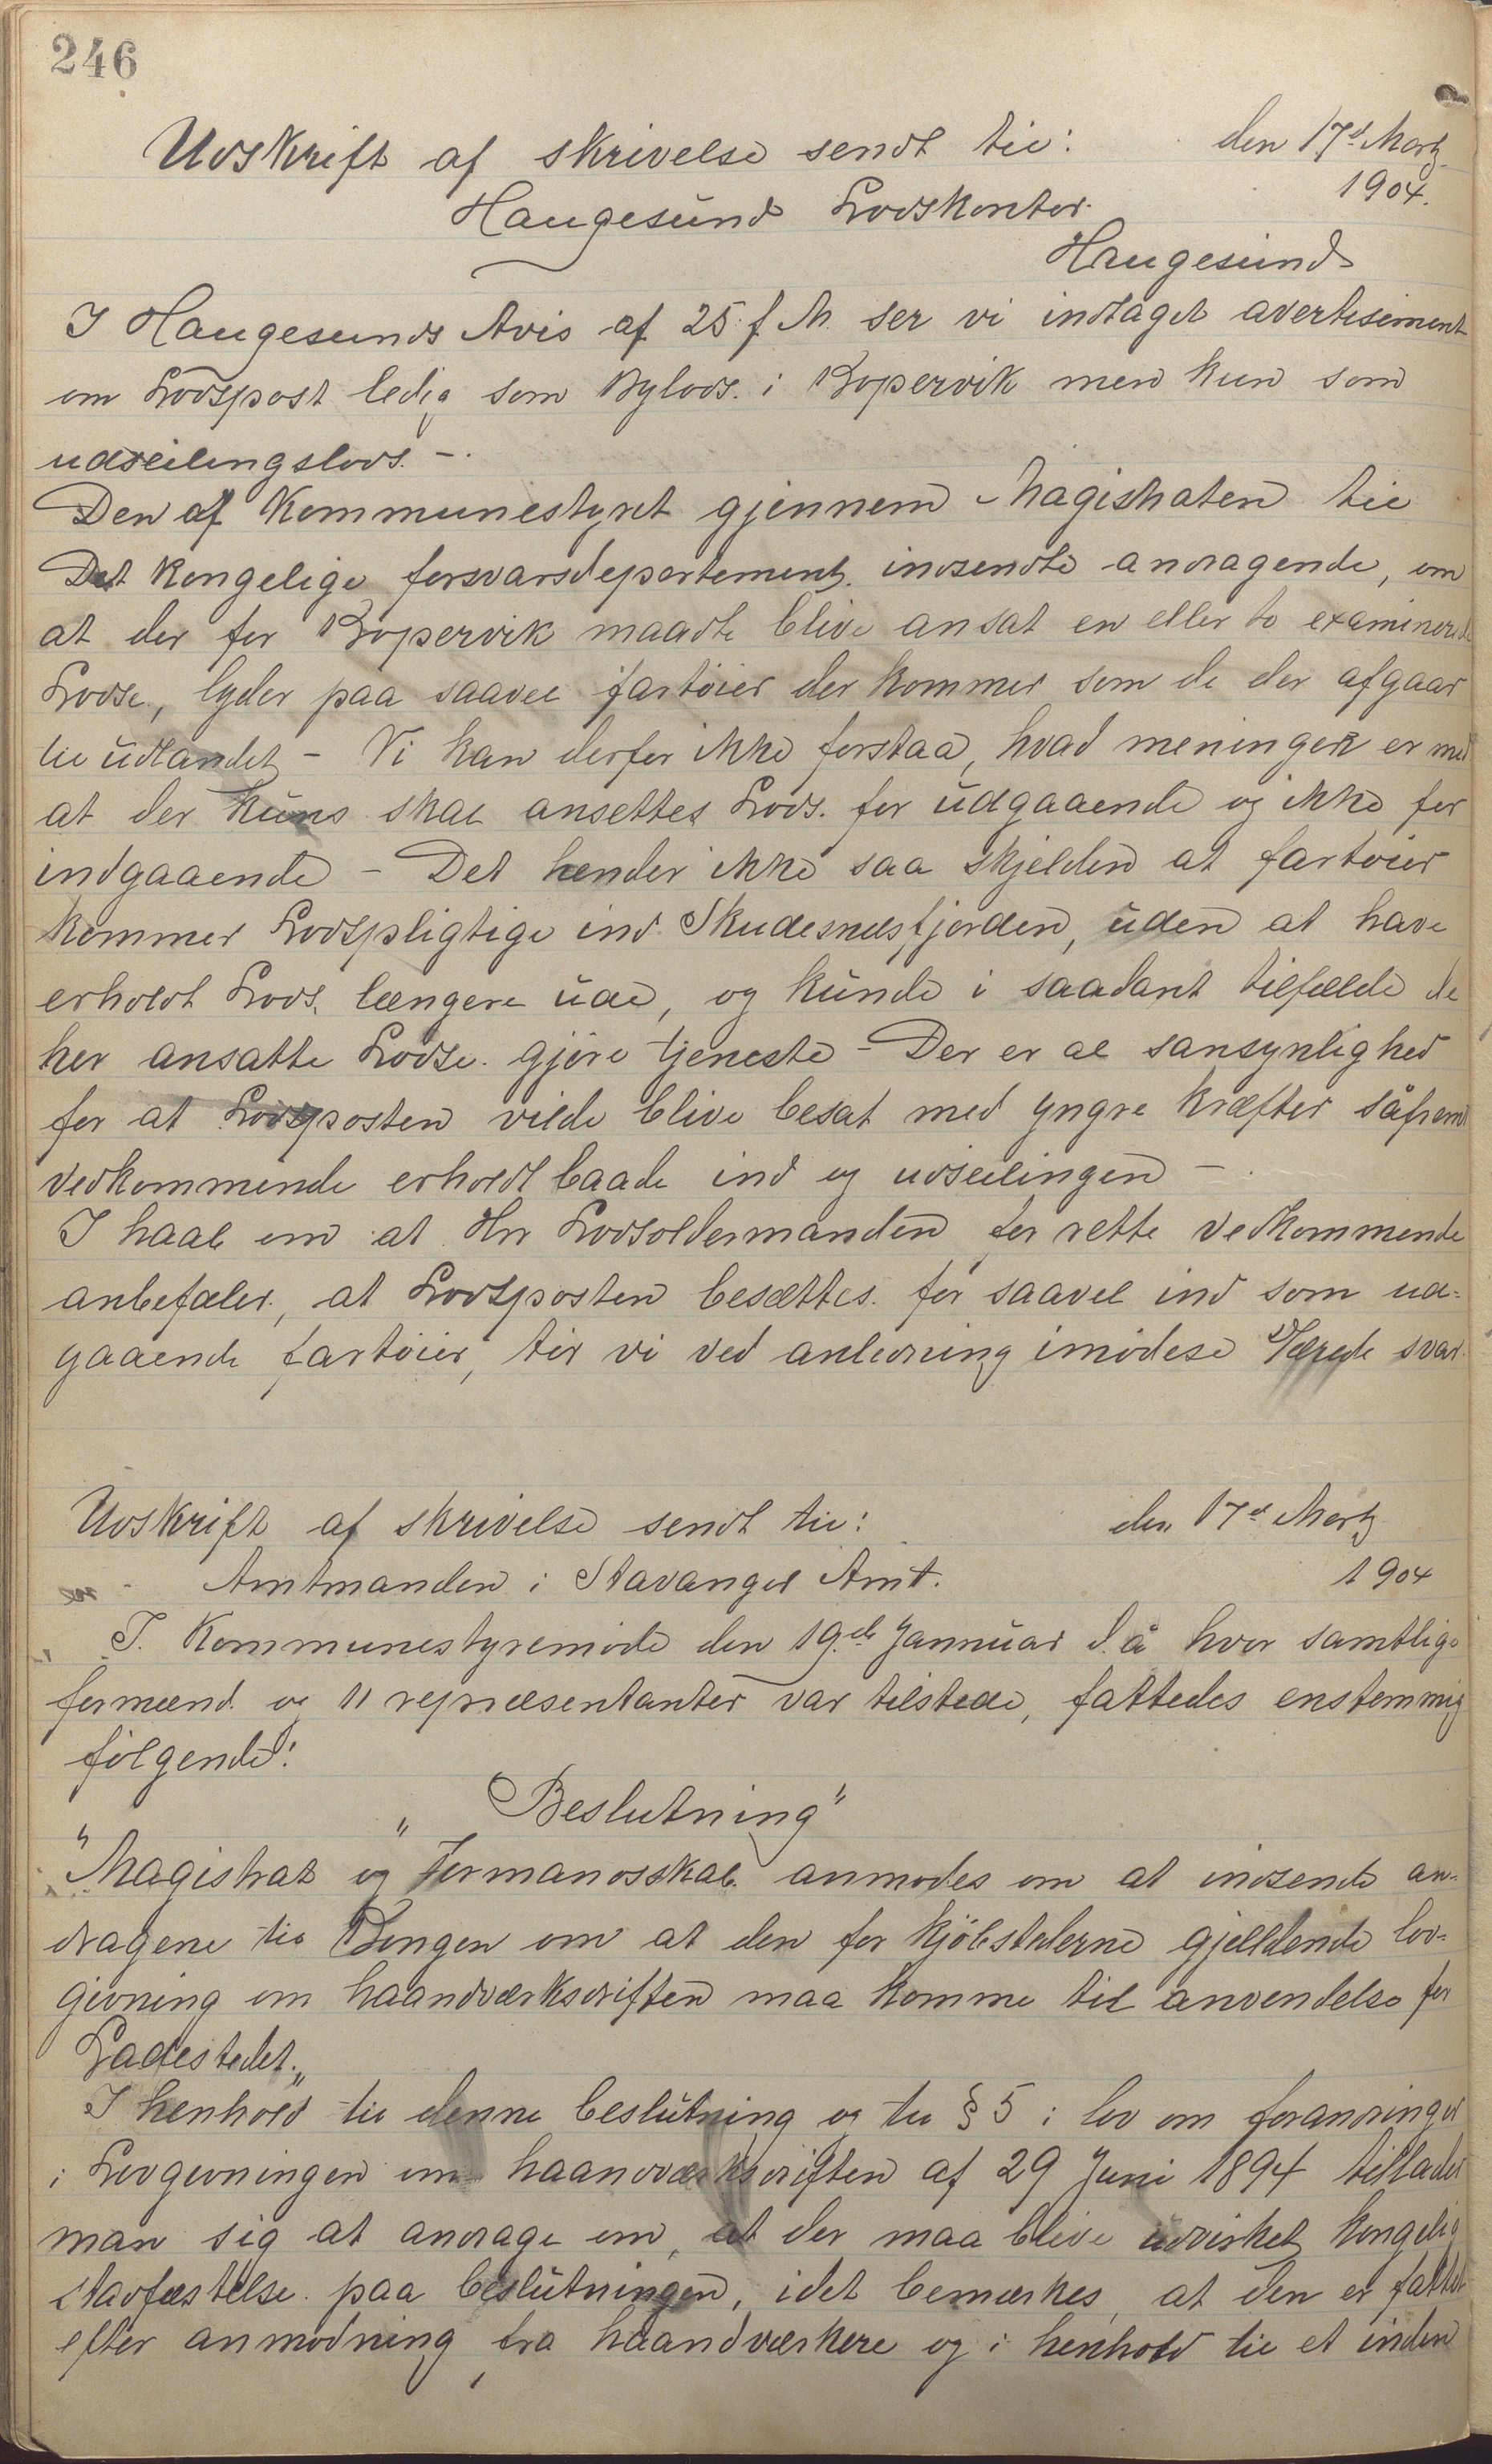 246
Udskrift af skrivelse sendt til: den 17d Martz
1904.
Haugesund Lodskontor.
Haugesund
I Haugesunds Avis af 25. f. M. ser vi indtaget avertisement
om Lodspost ledig som Bylods. i Kopervik men kun som
udseilingslods. –.
Den af Kommunestyret gjennem Magistraten til
Det Kongelige forsvarsdepartement. indsendte andragende, om
at der for Kopervik maadte blive ansat en eller to examinerede
Lodse, lyder paa saavel fartøier der kommer som de der afgaar
til udlandet – Vi kan derfor ikke forstaa, hvad meningen er med
at der kuns skal ansettes Lods. for udgaaende og ikke for
indgaaende – Det hender ikke saa skjelden at fartøier
kommer Lodspligtige ind Skudesnesfjorden, uden at have
erholdt Lods. længere ude, og kunde i saadant tilfælde de
her ansatte Lodse. gjøre tjeneste – Der er al sansynlighed
for at Lodsposten vilde blive besat med yngre kræfter såfremt
vedkommende erholdt baade ind og udseilingen –.
I haab om at Hrr Lodsoldermanden for rette vedkommende
anbefaler, at Lodsposten besættes. for saavel ind som ud-
gaaende fartøier, tør vi ved anledning imødese Ærede svar.
Udskrift af skrivelse sendt til: den 17d Martz
Amtmanden i Stavanger Amt. 1904
I. Kommunestyremøde den 19.de Jannuar d. å hvor samtlige
formænd og 11 repræsentanter var tilstede, fattedes enstemmig
følgende:
"Beslutning"
"Magistrat og Formandsskab. anmodes om at indsende an-
dragene til Kongen om at den for kjøbstderne gjelldende lov-
givning om haandværksdriften maa komme til anvendelse for
Ladestedet."
I henhold til denne beslutning og til § 5 i lov om forandringer
i Lovgivningen om haandværksdriften af 29 Juni 1894 tillader
man sig at andrage om, at der maa blive udvirket kongelig
stadfæstelse. paa beslutningen, idet bemærkes, at den er fattet
efter anmodning fra haandværkere og i henhold til et inden